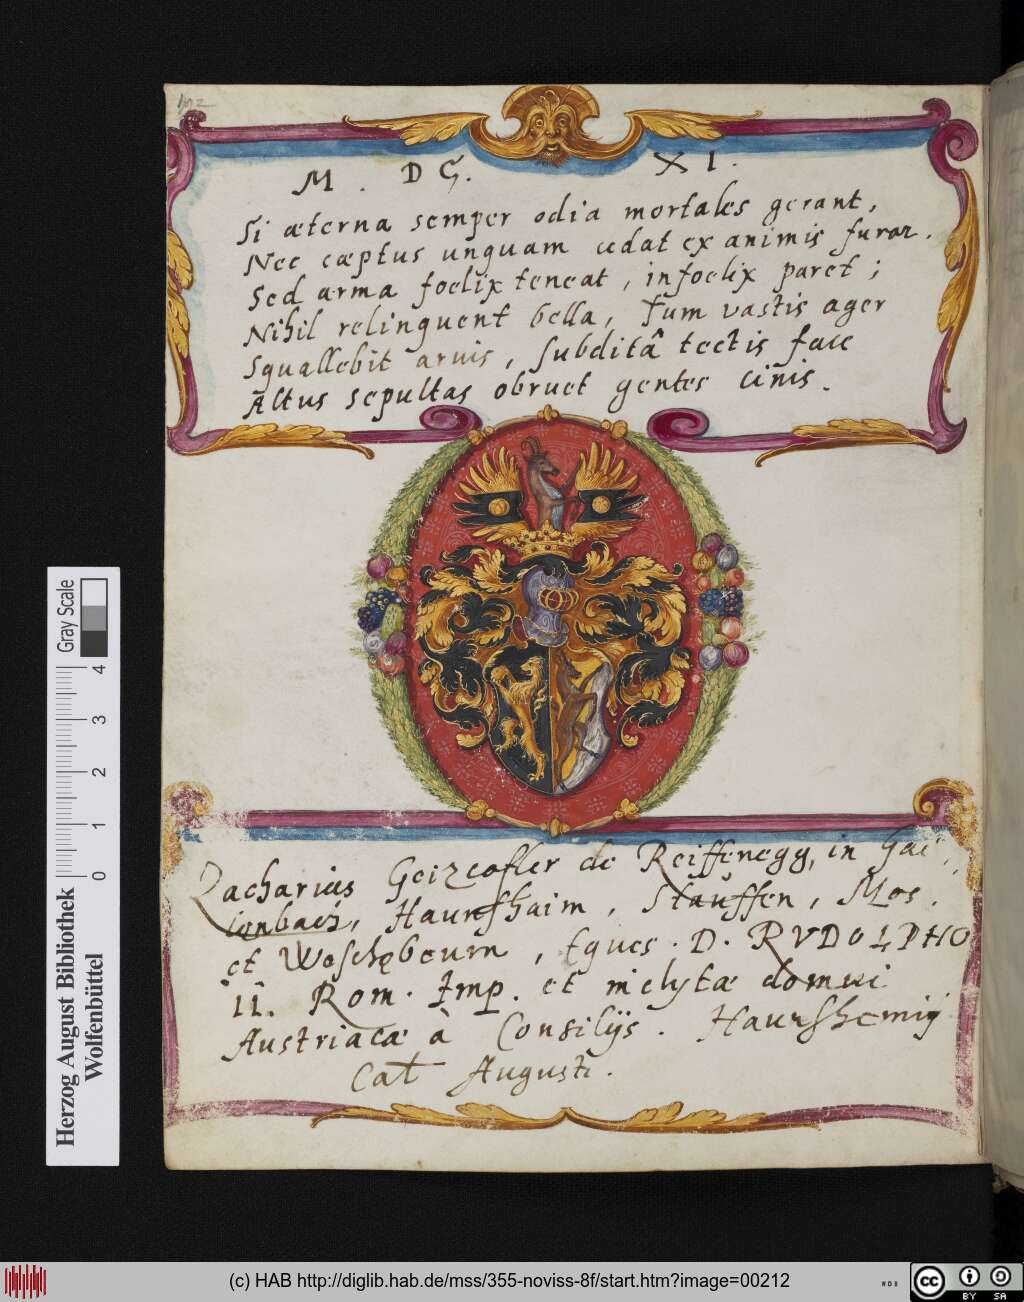 192
M . DC. XI.
Si æterna semper odia mortales gerant,
Nec cæptus unquam cedat ex animis furor.
Sed arma foelix teneat, infoelix paret;
Nihil relinquent bella, Tum vastis ager
Squallebit aruis, subditâ tectis face
Altus sepultas obruet gentes cinis.
Zacharius Geizcofler de Reiffenegg, in Gai,
lenbach, Haunshaim, Stauffen, Mos,
et Weschębeurn, Eques. D. RVDOLPHO
II. Rom. Imp. et inclytæ domui
Austriacæ à Consilijs. Haunshemij
Cal Augusti.
Herzog August Bibliothek
Wolfenbüttel
0 1 2 3 4
Gray Scale
(c) HAB http://diglib.hab.de/mss/355-noviss-8f/start.htm?image=00212
WDB
cc BY SA